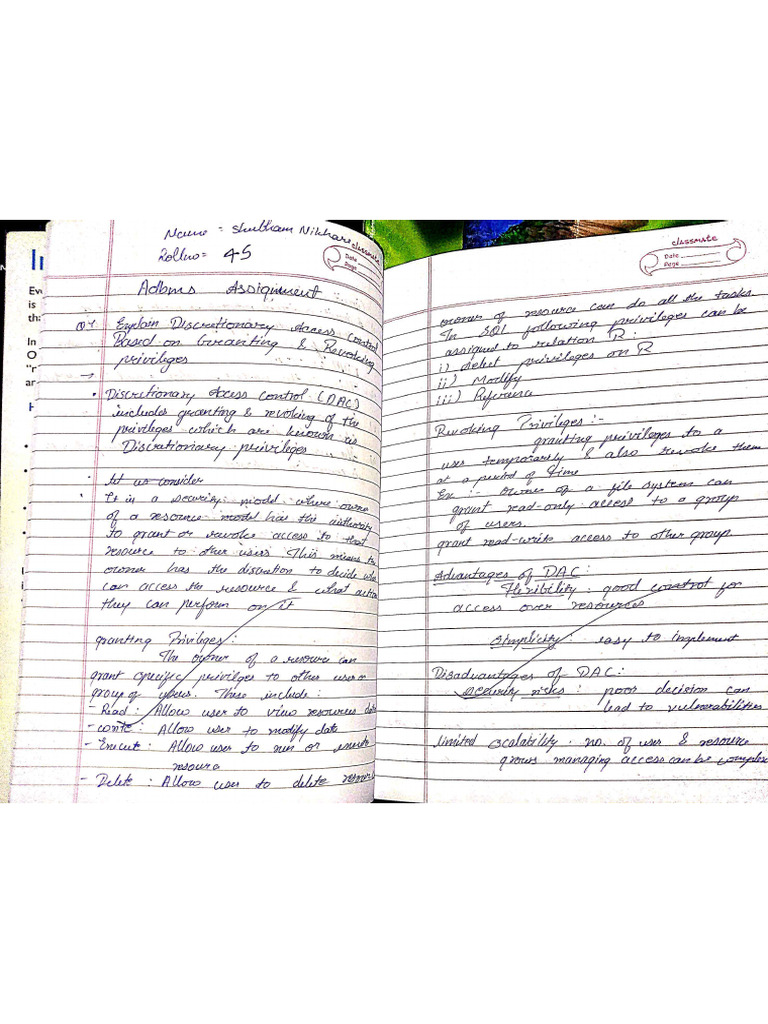 In
Eve
is
tha
In
O
"r
ar
H
Name = Shubham Nikhare
Rollno = 45
classmate
Date
Page
Adbms Assignment
Q1 Explain Discretionary Access Control
Based on Granting & Revoking
privileges
→
• Discretionary Access control (DAC)
includes granting & revoking of the
privileges which are known as
Discretionary privileges
• let us consider
• It is a security model where owne
of a resource model has the authority
to grant or revoke access to that
resource to other users This means th
owner has the discretion to decide who
can access the resource & what action
they can perform on it
granting Privileges :
The owner of a resource can
grant specific privileges to other user or
group of users. These include :
- Read : Allow user to view resources data
- write : Allow user to modify data
- Execute : Allow user to run or execute
resource
- Delete : Allow user to delete resource
classmate
Date
Page
owner of resource can do all the tasks.
In SQL following privileges can be
assigned to relation R :
i) select privileges on R
ii) Modify
iii) Reference
Revoking Privileges :-
granting privileges to a
user temporarily & also revoke them
at a period of time
Ex :- owner of a file system can
grant read-only access to a group
of users.
grant read-write access to other group.
Advantages of DAC :
Flexibility : good control for
access over resources
Simplicity : easy to implement
Disadvantages of DAC :
security risks : poor decision can
lead to vulnerabilities
Limited scalability : no. of user & resource
grows managing access can be complex